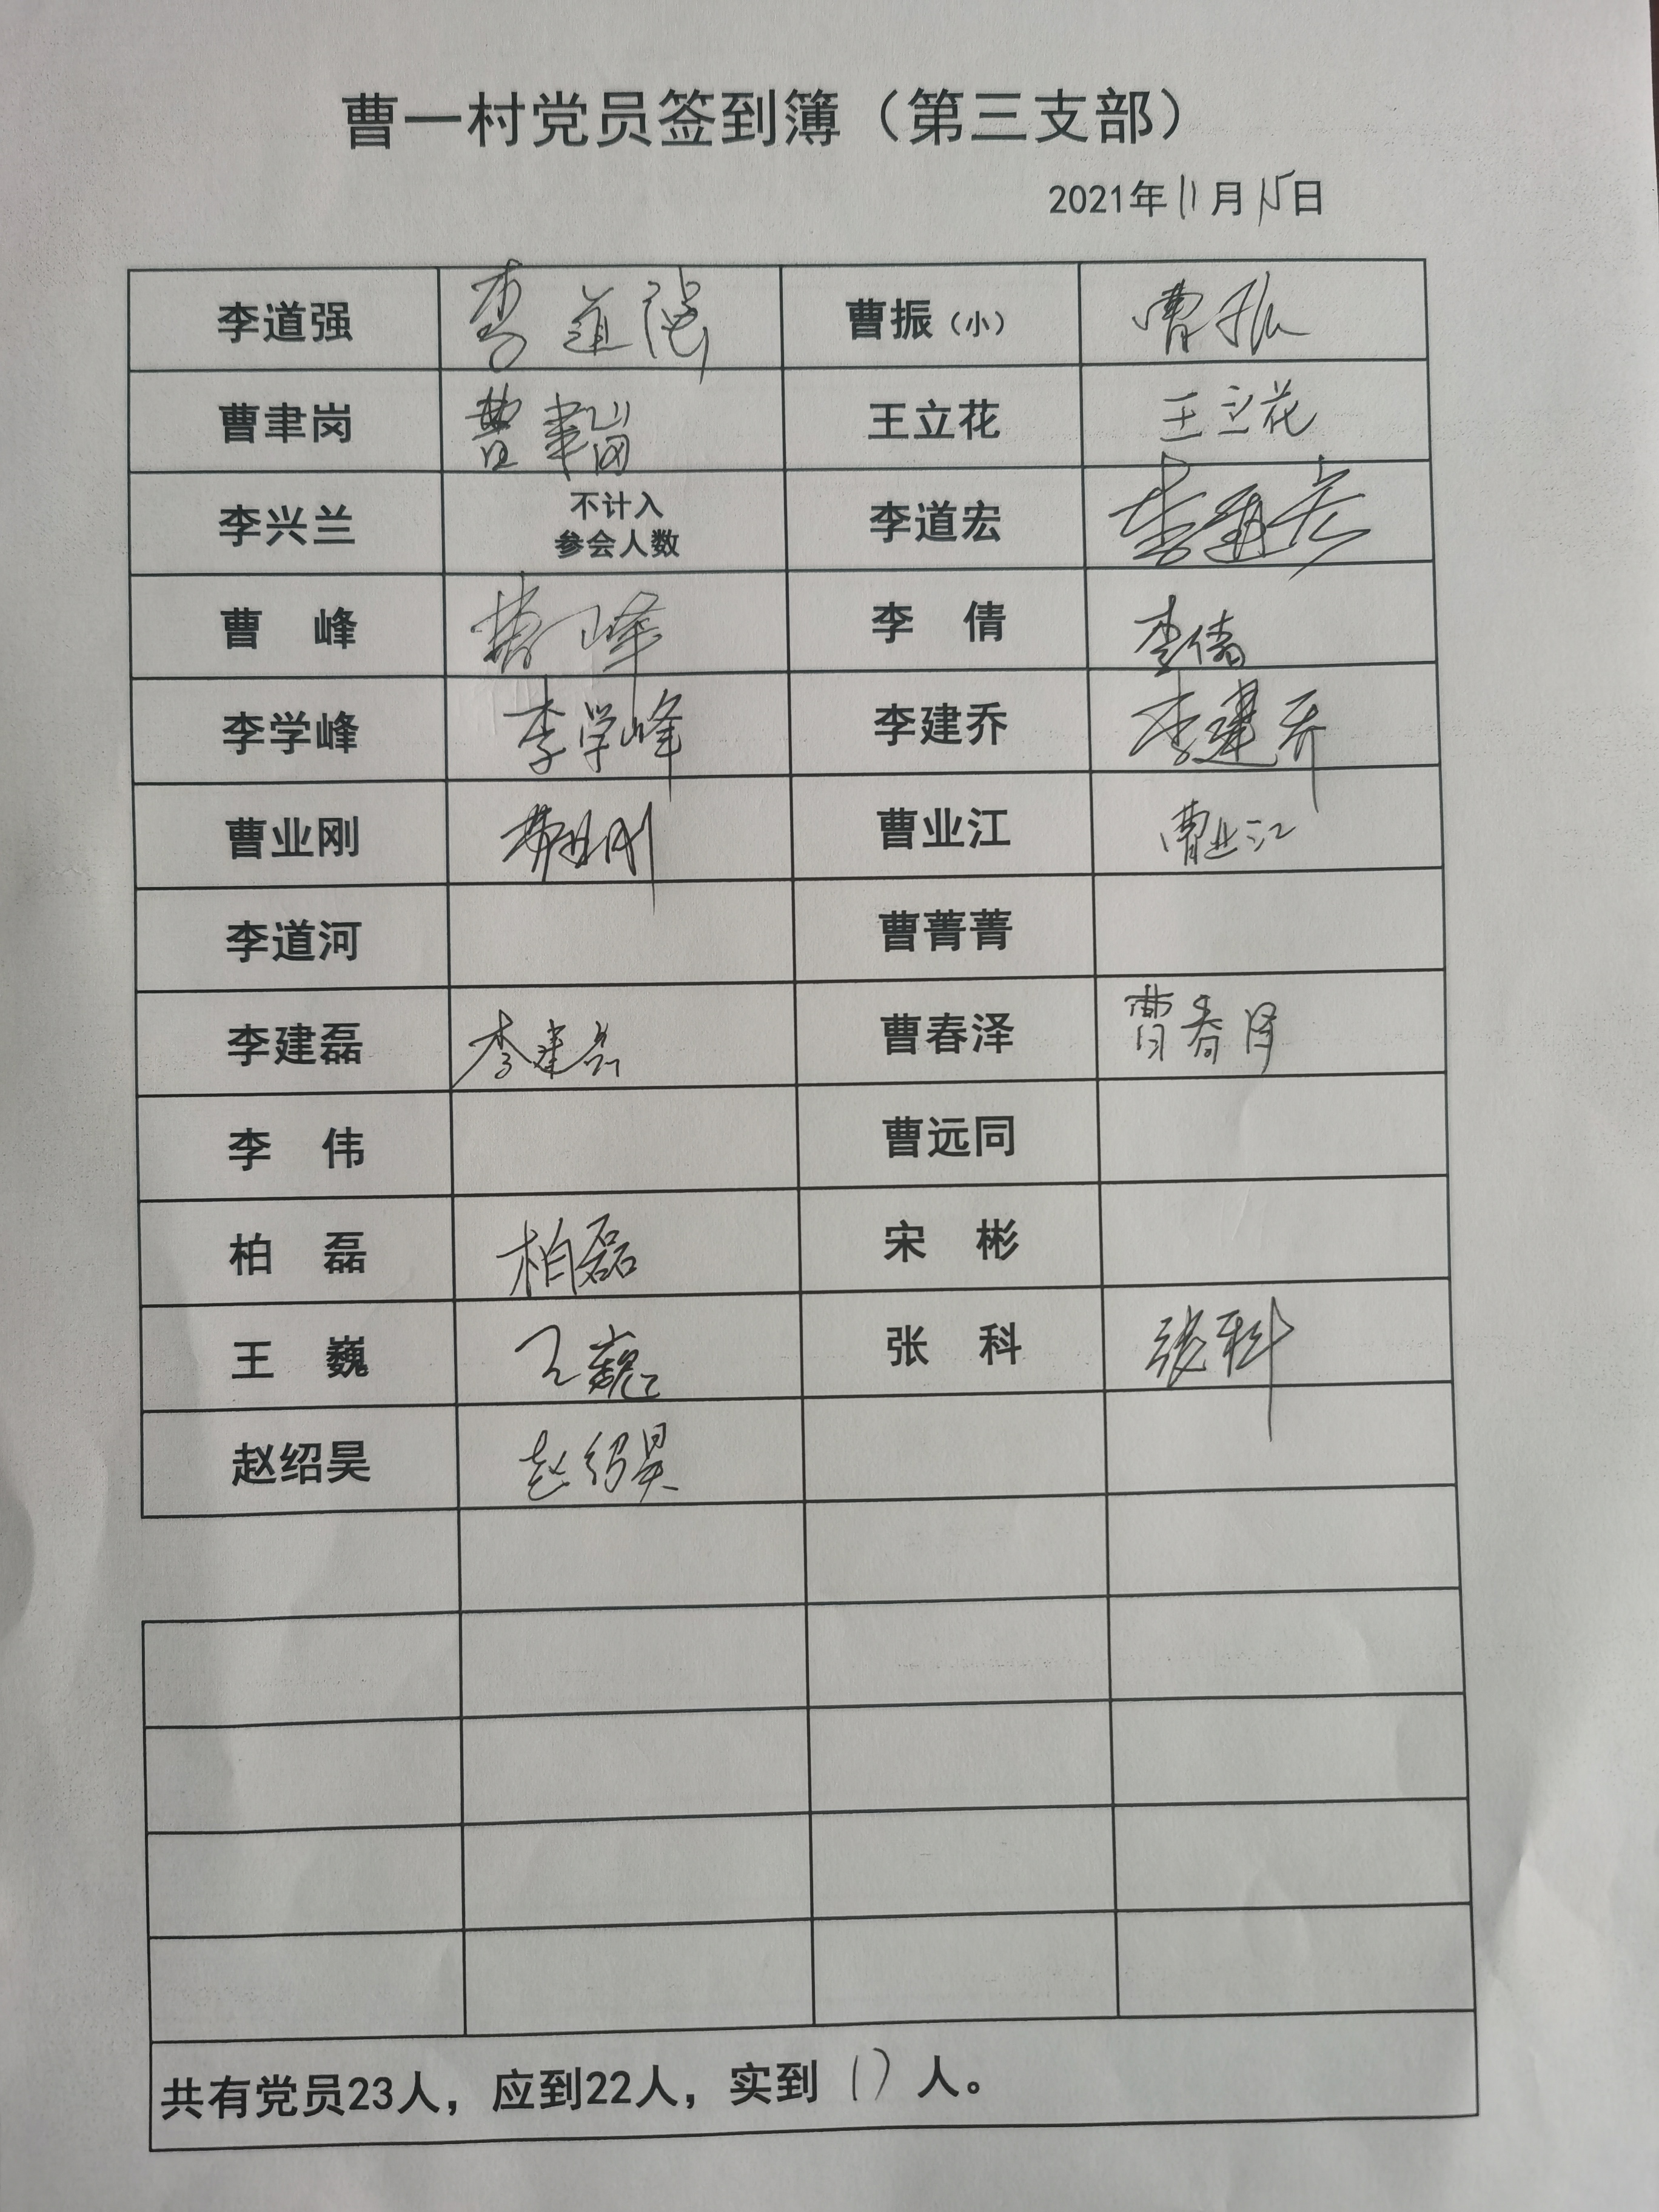 曹一村党员签到簿（第三支部）
2021年11月15日
李道强 李道强 曹振（小） 曹振
曹聿岗 曹聿岗 王立花 王立花
李兴兰 不计入 参会人数 李道宏 李道宏
曹 峰 曹峰 李 倩 李倩
李学峰 李学峰 李建乔 李建乔
曹业刚 曹业刚 曹业江 曹业江
李道河 曹菁菁
李建磊 李建磊 曹春泽 曹春泽
李 伟 曹远同
柏 磊 柏磊 宋 彬
王 巍 王巍 张 科 张科
赵绍昊 赵绍昊
共有党员23人，应到22人，实到 17 人。